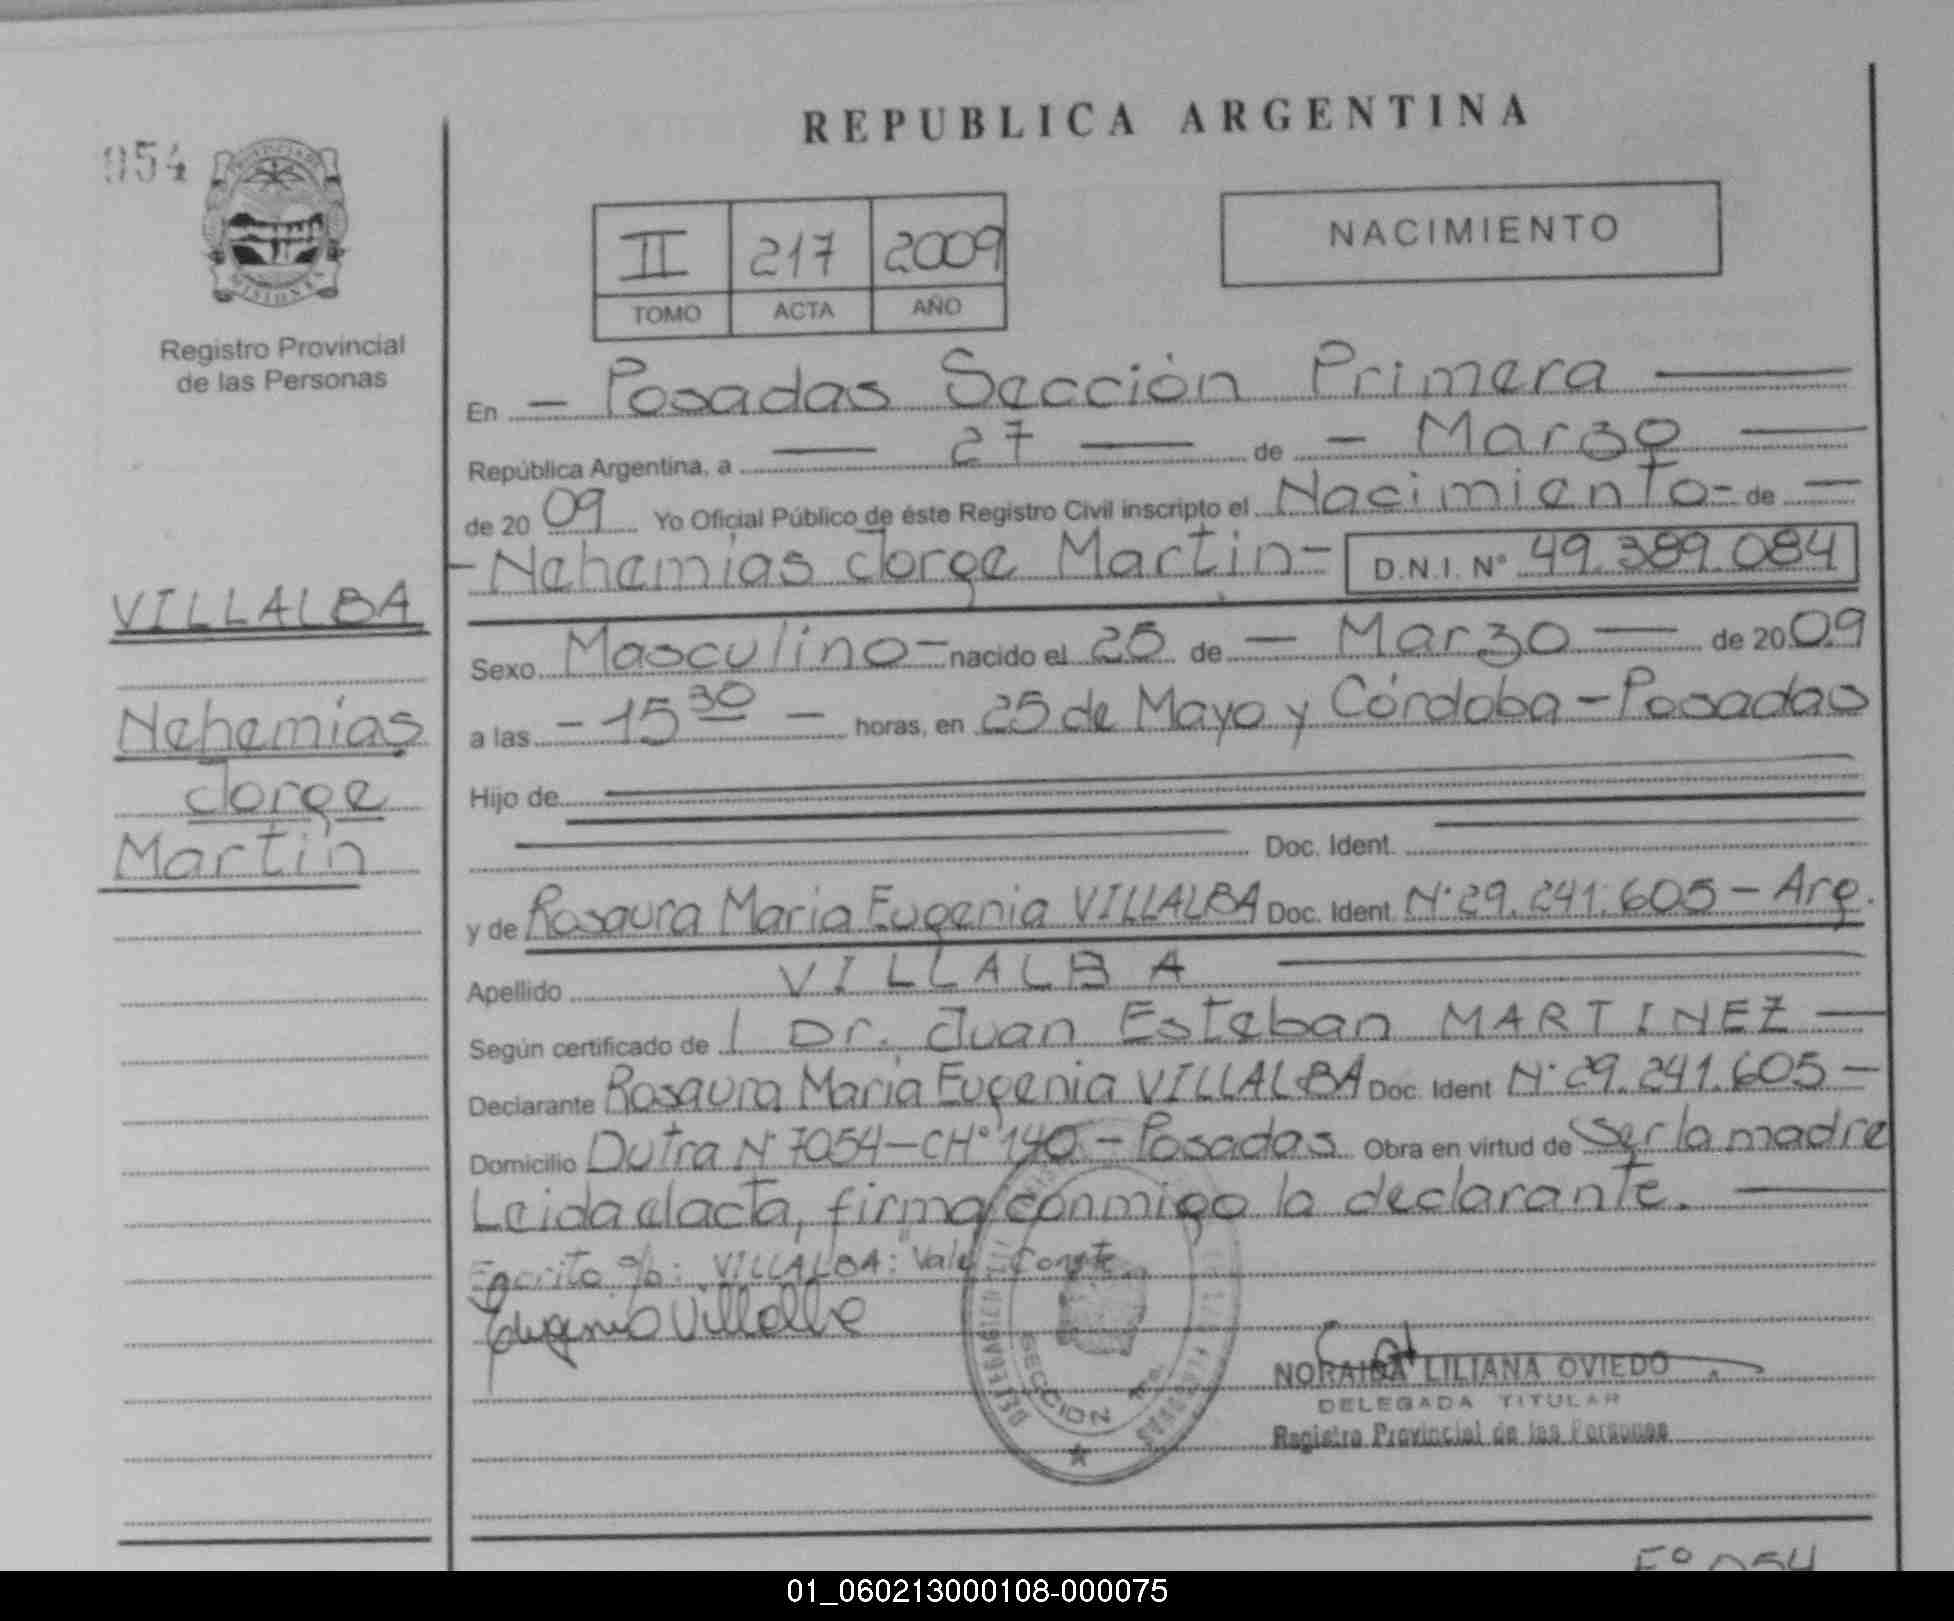 REPUBLICA ARGENTINA
054
PROVINCIA DE
MISIONES
Registro Provincial
de las Personas
II 217 2009
TOMO ACTA AÑO
NACIMIENTO
En - Posadas Sección Primera
República Argentina, a 27 de - Marzo
de 20 09 Yo Oficial Público de éste Registro Civil inscripto el Nacimiento - de
- Nehemias Jorge Martin - D.N.I. N° 49.389.084
VILLALBA
Nehemias
Jorge
Martín
Sexo Masculino - nacido el 25 de - Marzo de 20 09
a las - 15 30 - horas, en 25 de Mayo y Córdoba - Posadas
Hijo de
Doc. Ident.
y de Rosaura Maria Eugenia VILLALBA Doc. Ident N° 29.241.605 - Arg.
Apellido VILLALBA
Según certificado de Dr. Juan Esteban MARTINEZ
Declarante Rosaura Maria Eugenia VILLALBA Doc. Ident N° 29.241.605 -
Domicilio Dutra N° 7054 - CH° 140 - Posadas Obra en virtud de Ser la madre
Leida el acta, firma conmigo la declarante.
Escrito s/b: VILLALBA: Vale Conste
Eugenia Villalba
DELEGACION
SECCION 1ra.
NORAIDA LILIANA OVIEDO
DELEGADA TITULAR
Registro Provincial de las Personas
F° 054
01_060213000108-000075